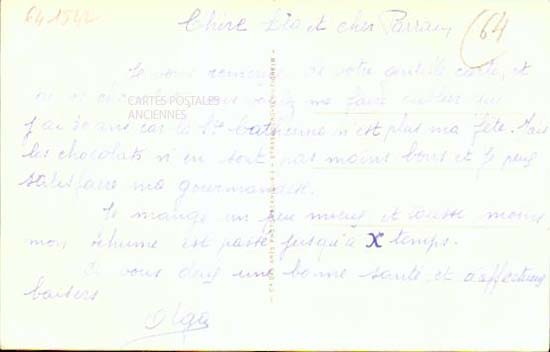 641542
Chère Léa et cher Parrain
64
Je vous remercie de votre gentille carte, et
chocolats vous voulez me faire oublier que
CARTES POSTALES
ANCIENNES
j'ai 20 ans car la Ste Catherine n'est plus ma fête. Mais
les chocolats n'en sont pas moins bons et je peux
satisfaire ma gourmandise.
Je mange un peu mieux et tousse moins
mon rhume est passé jusqu'à X temps.
À vous deux une bonne santé, et affectueux
baisers
Olga